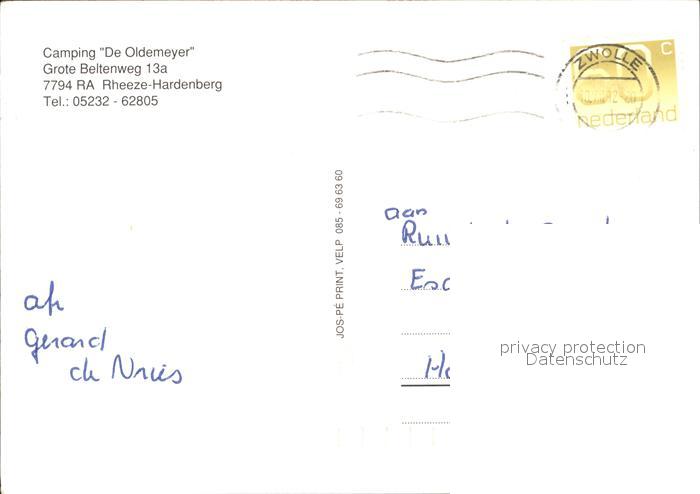 Camping "De Oldemeyer"
Grote Beltenweg 13a
7794 RA Rheeze-Hardenberg
Tel.: 05232 - 62805
ZWOLLE
60 C
nederland
JOS-PÉ PRINT, VELP 085 - 69 63 60
aan
afz
Gerard
de Vries
privacy protection
Datenschutz